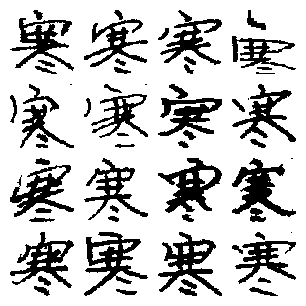 寒寒寒寒
寒寒寒寒
寒寒寒寒
寒寒寒寒